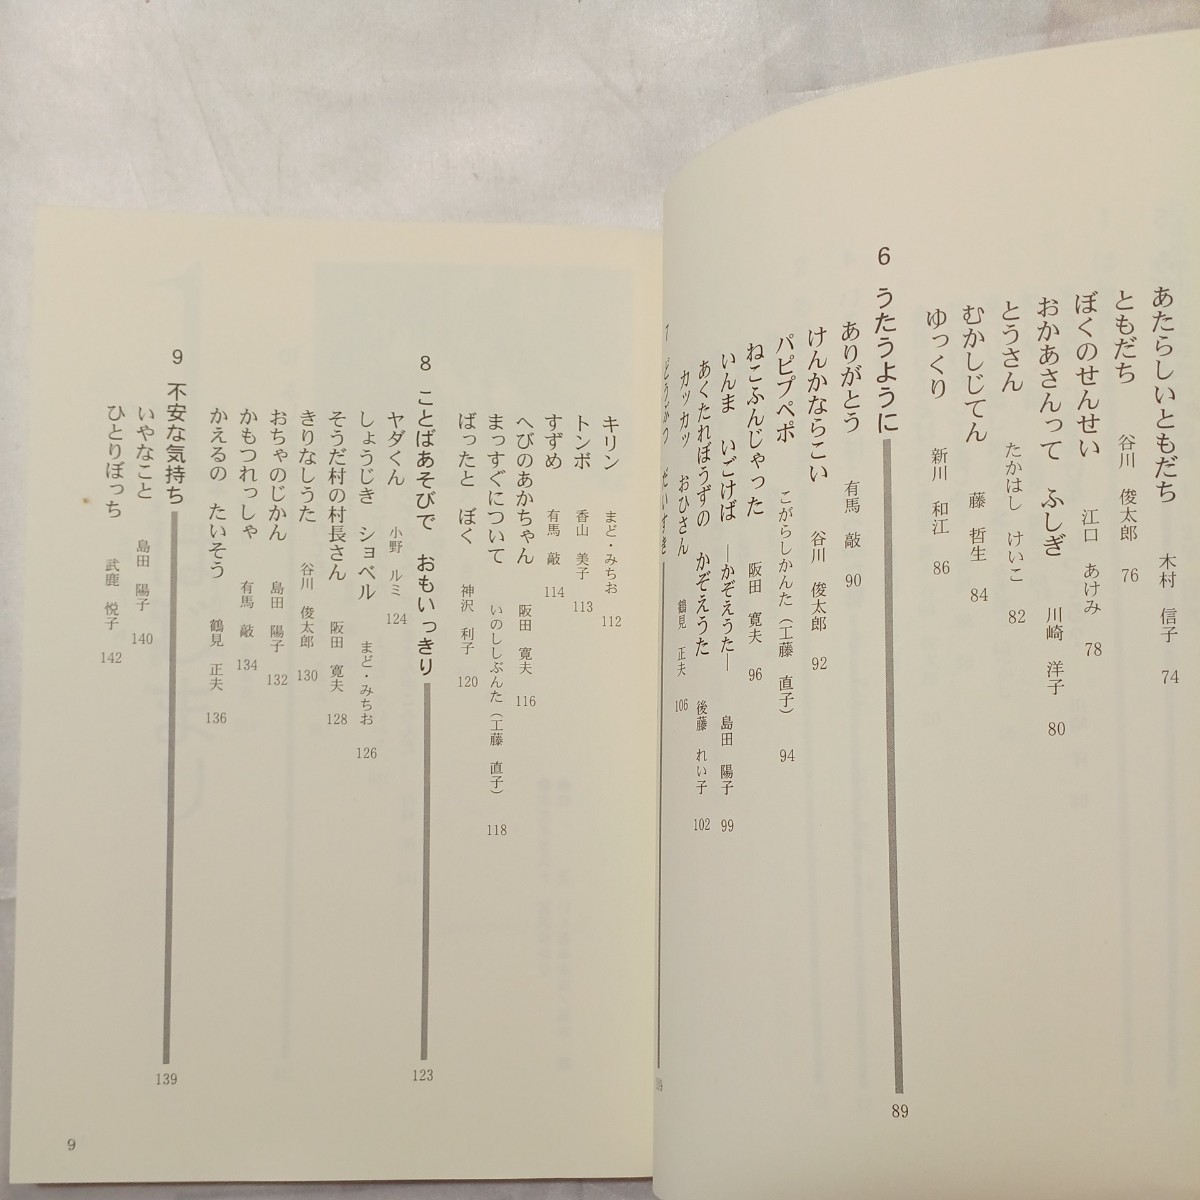 あたらしいともだち　木村　信子　74
ともだち　谷川　俊太郎　76
ぼくのせんせい　江口　あけみ　78
おかあさんって　ふしぎ　川崎　洋子　80
とうさん　たかはし　けいこ　82
むかしじてん　藤　哲生　84
ゆっくり　新川　和江　86
6　うたうように　89
ありがとう　有馬　敲　90
けんかならこい　谷川　俊太郎　92
パピプペポ　こがらしかんた（工藤　直子）　94
ねこふんじゃった　阪田　寛夫　96
いんま　いごけば　―かぞえうた―　島田　陽子　99
あくたれぼうずの　かぞえうた　後藤　れい子　102
カッカッ　おひさん　鶴見　正夫　106
7　どうぶつ　だいすき
キリン　まど・みちお　112
トンボ　香山　美子　113
すずめ　有馬　敲　114
へびのあかちゃん　阪田　寛夫　116
まっすぐについて　いのししぶんた（工藤　直子）　118
ばったと　ぼく　神沢　利子　120
8　ことばあそびで　おもいっきり　123
ヤダくん　小野　ルミ　124
しょうじき　ショベル　まど・みちお　126
そうだ村の村長さん　阪田　寛夫　128
きりなしうた　谷川　俊太郎　130
おちゃのじかん　島田　陽子　132
かもつれっしゃ　有馬　敲　134
かえるの　たいそう　鶴見　正夫　136
9　不安な気持ち　139
いやなこと　島田　陽子　140
ひとりぼっち　武鹿　悦子　142
9